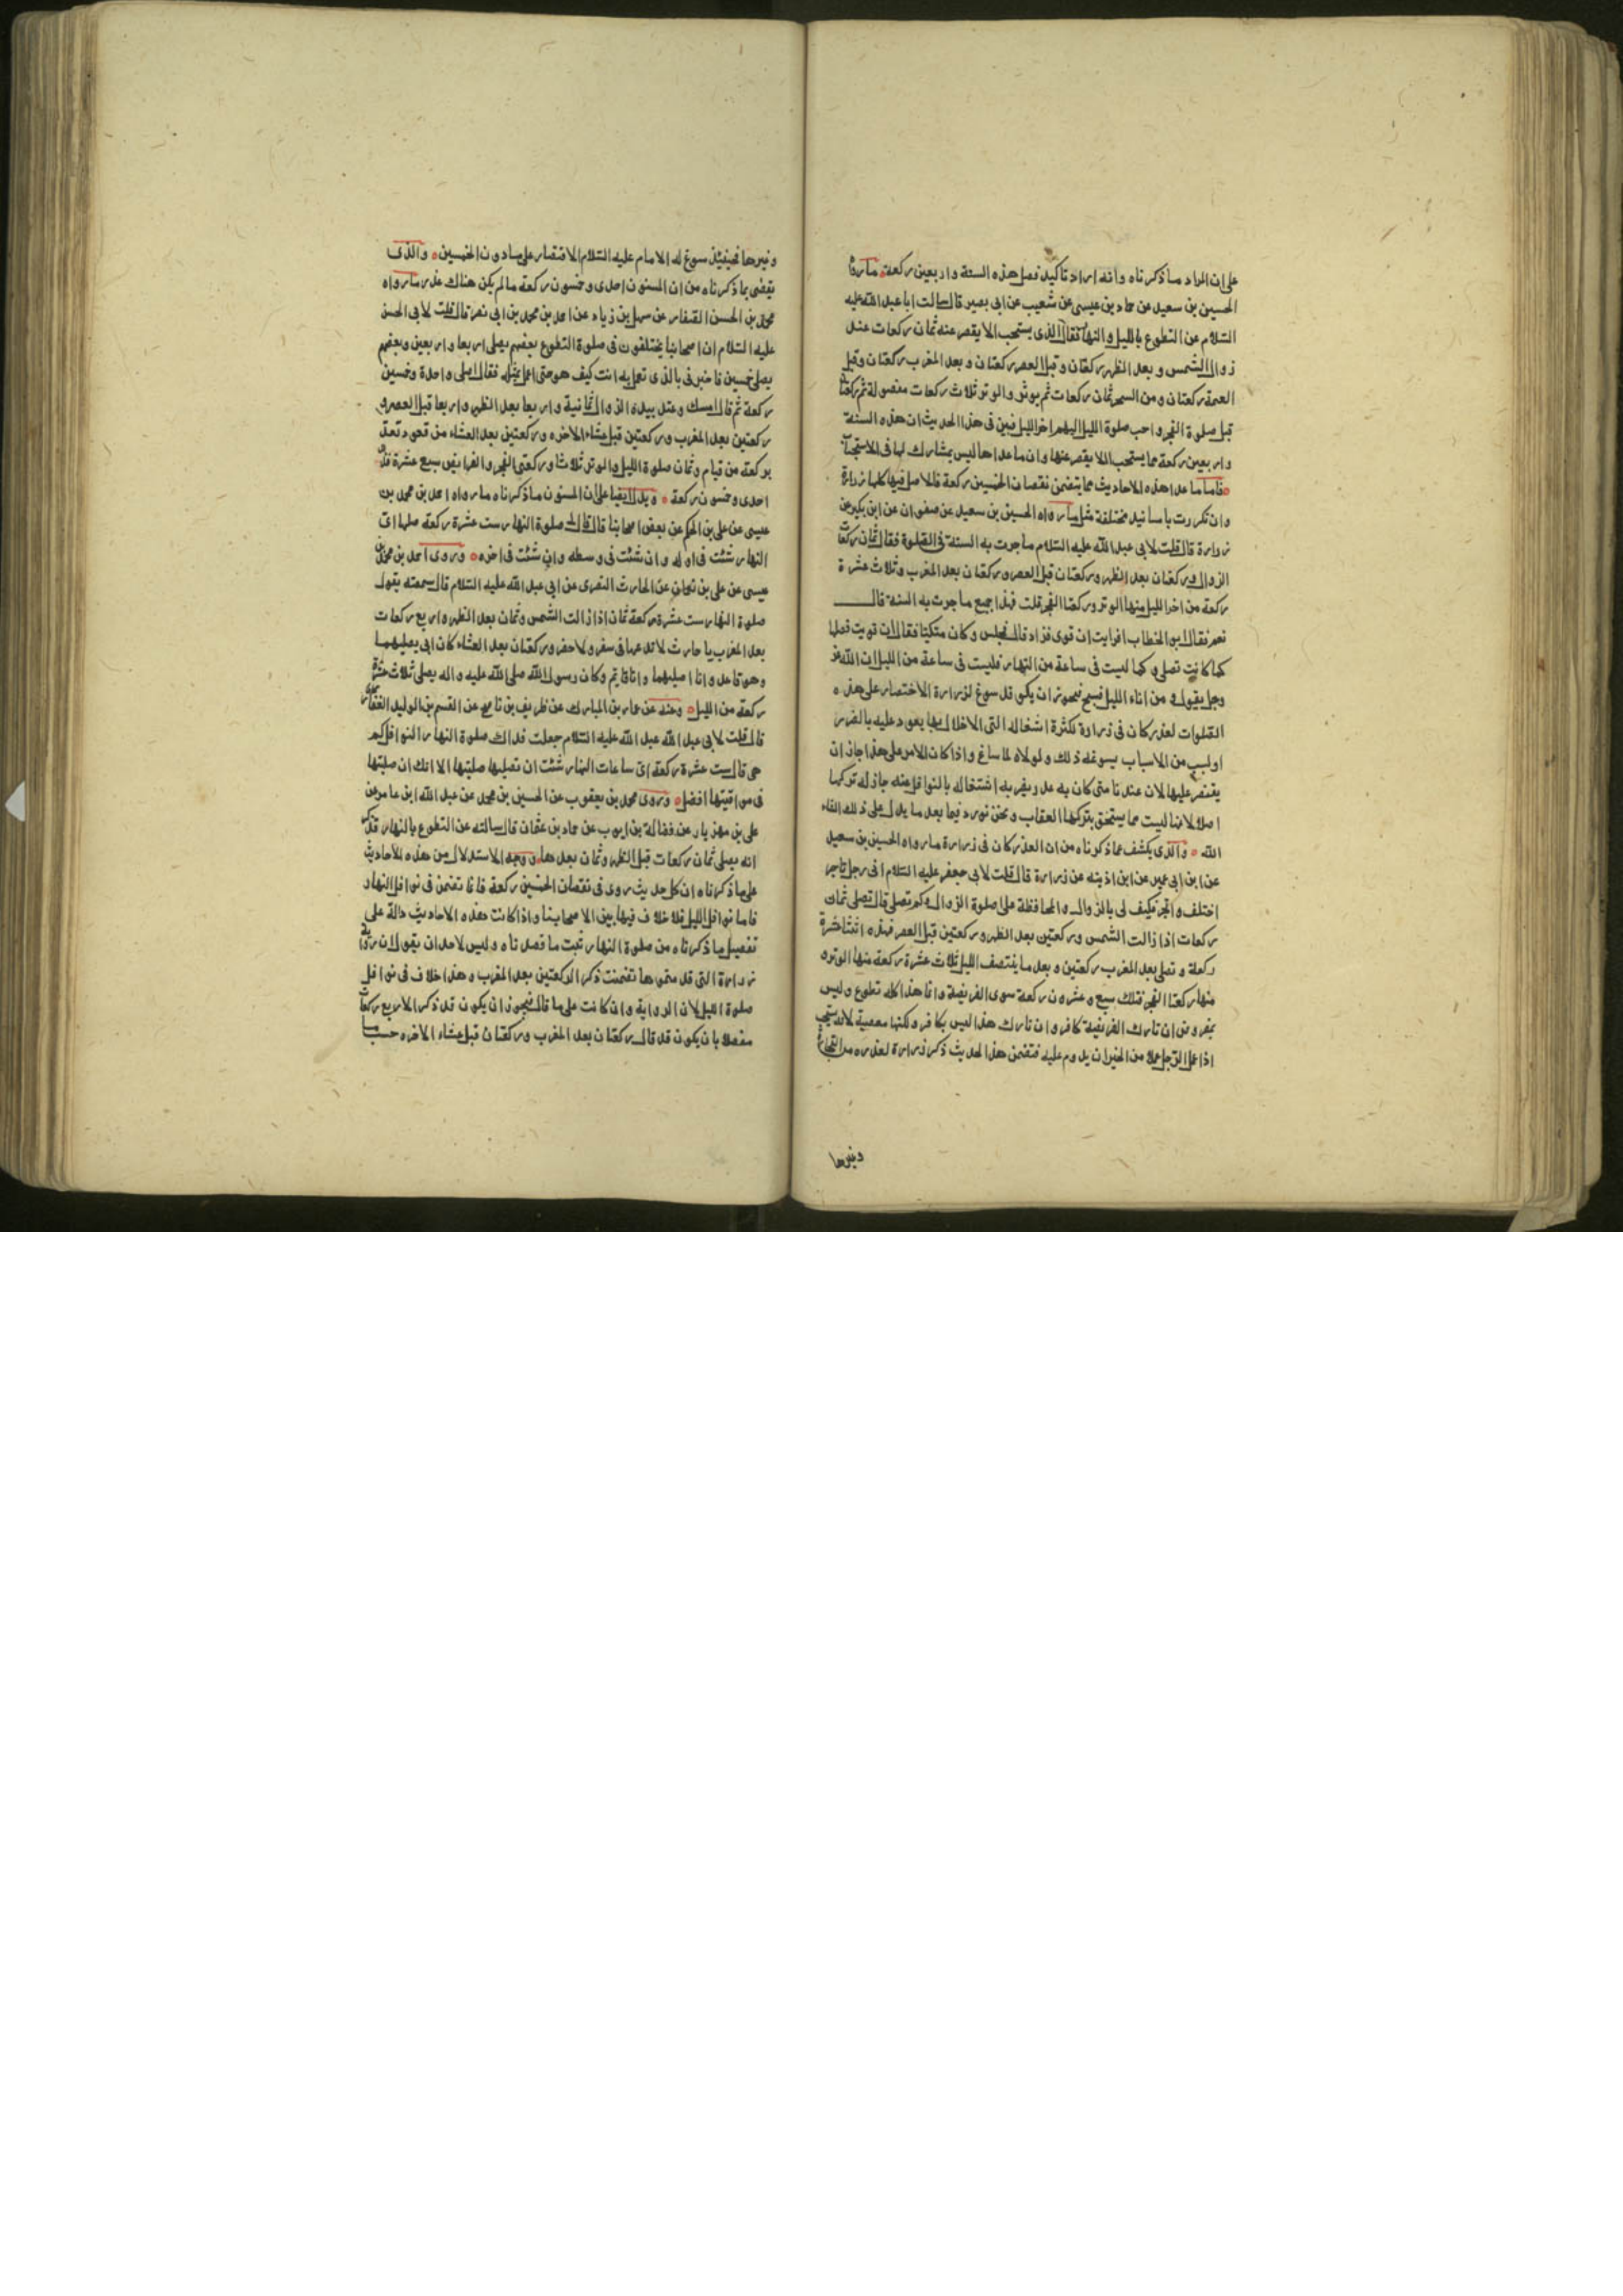 على ان المراد ما ذكرناه وانه اراد تاكيد فضل هذه الستة واربعين ركعة ما رواه
الحسين بن سعيد عن حماد بن عيسى عن شعيب عن ابى بصير قال سالت ابا عبد الله عليه
السلام عن التطوع بالليل والنهار فقال الذى يستحب الا يقصر عنه ثمان ركعات عند
زوال الشمس وبعد الظهر ركعتان وقبل العصر ركعتان وبعد المغرب ركعتان وقبل
العتمة ركعتان ومن السحر ثمان ركعات ثم يوتر والوتر ثلاث ركعات مفصولة ثم ركعتان
قبل صلوة الفجر واحب صلوة الليل اليهم اخر الليل فبين فى هذا الحديث ان هذه الستة
واربعين ركعة مما يستحب الا يقصر عنها وان ما عداها ليس يشارك لها فى الاستحباب
فاما ما عدا هذه الاحاديث مما يتضمن نقصان الخمسين ركعة فالاصل فيها كلها زرارة
وان تكررت باسانيد مختلفة مثل ما رواه الحسين بن سعيد عن صفوان عن ابن بكير عن
زرارة قال قلت لابى عبد الله عليه السلام ما جرت به السنة فى الصلوة فقال ثمان ركعات
الزوال وركعتان بعد الظهر وركعتان قبل العصر وركعتان بعد المغرب وثلاث عشرة
ركعة من اخر الليل منها الوتر وركعتا الفجر قلت فهذا جميع ما جرت به السنة قال
نعم فقال ابو الخطاب افرايت ان قوى فزاد قال فجلس وكان متكئا فقال ان قويت فصلها
كما كانت تصلى وكما ليست فى ساعة من النهار فليست فى ساعة من الليل ان الله عز
وجل يقول ومن اناء الليل فسبح فيجوز ان يكون قد سوغ لزرارة الاختصار على هذه
الصلوات لعذر كان فى زرارة لكثرة اشغاله التى الاخلال بها يعود عليه بالضرر
او لسبب من الاسباب يسوغه ذلك ولولاه لما ساغ واذا كان الامر على هذا جاز ان
يقتصر عليها لان عندنا متى كان به عذر يضر به اشتغاله بالنوافل عنه جاز له تركها
اصلا لانها ليست مما يستحق بتركها العقاب ونحن نورد فيما بعد ما يدل على ذلك انشاء
الله والذى يكشف عما ذكرناه من ان العذر كان فى زرارة ما رواه الحسين بن سعيد
عن ابن ابى عمير عن ابن اذينه عن زرارة قال قلت لابى جعفر عليه السلام انى رجل تاجر
اختلف واتجر فكيف لى بالزوال والمحافظة على صلوة الزوال وكم تصلى قال تصلى ثمان
ركعات اذا زالت الشمس وركعتين بعد الظهر وركعتين قبل العصر فهذه اثنتا عشرة
ركعة وتصلى بعد المغرب ركعتين وبعد ما ينتصف الليل ثلاث عشرة ركعة منها الوتر و
منها ركعتا الفجر فتلك سبع وعشرون ركعة سوى الفريضة وانما هذا كله تطوع وليس
بمفروض ان تارك الفريضة كافر وان تارك هذا ليس بكافر ولكنها معصية لانه يستحب
اذا عمل الرجل عملا من الخير ان يدوم عليه فتضمن هذا الحديث ذكر زرارة لعذره من التجارة
وغيرها
وغيرها فحينئذ سوغ له الامام عليه السلام الاقتصار على ما دون الخمسين والذى
يقضى بما ذكرناه من ان المسنون احدى وخمسون ركعة ما لم يكن هناك عذر ما رواه
محمد بن الحسن الصفار عن سهل بن زياد عن احمد بن محمد بن ابى نصر قال قلت لابى الحسن
عليه السلام ان اصحابنا يختلفون فى صلوة التطوع بعضهم يصلى اربعا واربعين وبعضهم
يصلى خمسين فاخبرنى بالذى تعمل به انت كيف هو حتى اعمل بمثله فقال اصلى واحدة وخمسين
ركعة ثم قال امسك وعقد بيده الزوال ثمانية واربعا بعد الظهر واربعا قبل العصر و
ركعتين بعد المغرب وركعتين قبل عشاء الاخره وركعتين بعد العشاء من قعود تعد
بركعة من قيام وثمان صلوة الليل والوتر ثلاثا وركعتى الفجر والفرايض سبع عشرة فذلك
احدى وخمسون ركعة ويدل ايضا على ان المسنون ما ذكرناه ما رواه احمد بن محمد بن
عيسى عن على بن الحكم عن بعض اصحابنا قال قال لى صلوة النهار ست عشرة ركعة صلها اى
النهار شئت فى اوله وان شئت فى وسطه وان شئت فى اخره وروى احمد بن محمد بن
عيسى عن على بن نعمان عن الحارث النصرى عن ابى عبد الله عليه السلام قال سمعته يقول
صلوة النهار ست عشرة ركعة ثمان اذا زالت الشمس وثمان بعد الظهر واربع ركعات
بعد المغرب يا حارث لا تدعها فى سفر ولا حضر وركعتان بعد العشاء كان ابى يصليهما
وهو قاعد وانا اصليهما وانا قايم وكان رسول الله صلى الله عليه واله يصلى ثلاث عشرة
ركعة من الليل وعنه عن عمار بن المبارك عن ظريف بن ناصح عن القسم بن الوليد الغفارى
قال قلت لابى عبد الله عليه السلام جعلت فداك صلوة النهار النوافل كم
هى قال ست عشرة ركعة اى ساعات النهار شئت ان تصليها صليتها الا انك ان صليتها
فى مواقيتها افضل وروى محمد بن يعقوب عن الحسين بن محمد عن عبد الله ابن عامر عن
على بن مهزيار عن فضالة بن ايوب عن حماد بن عثمان قال سالته عن التطوع بالنهار فذكر
انه يصلى ثمان ركعات قبل الظهر وثمان بعدها ووجه الاستدلال من هذه الاحاديث
على ما ذكرناه ان كل حديث روى فى نقصان الخمسين ركعة فانما تضمن فى نوافل النهار
فاما نوافل الليل فلا خلاف فيها بين اصحابنا واذا كانت هذه الاحاديث دالة على
تفصيل ما ذكرناه من صلوة النهار ثبت ما قصدناه وليس لاحد ان يقول ان رواية
زرارة التى قدمتموها تضمنت ذكر الركعتين بعد المغرب وهذا خلاف فى نوافل
صلوة الليل لان الرواية وان كانت على ما قال فيجوز ان يكون قد ذكر الاربع ركعات
مفصلا بان يكون قد قال ركعتان بعد المغرب وركعتان قبل عشاء الاخره حسب ما